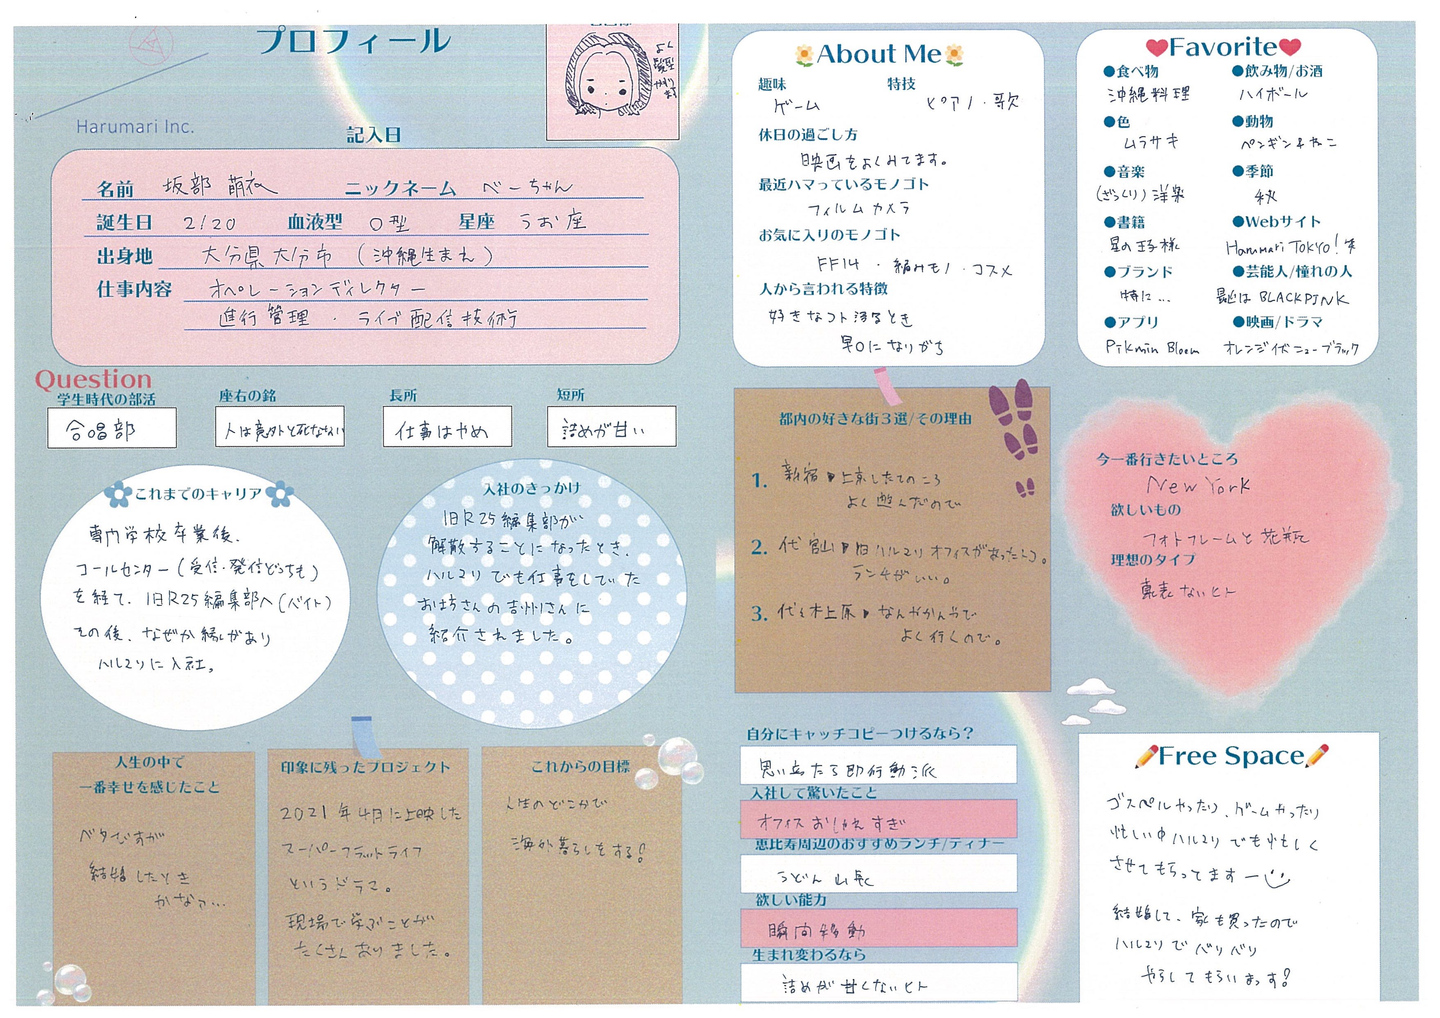 プロフィール
よく
髪型
かわり
ます
Harumari Inc.
記入日
名前 坂部 萌衣 ニックネーム べーちゃん
誕生日 2/20 血液型 O型 星座 うお座
出身地 大分県大分市 (沖縄生まれ)
仕事内容 オペレーションディレクター
進行管理 ・ ライブ配信技術
Question
学生時代の部活
合唱部
座右の銘
人は意外と死なない
長所
仕事はやめ
短所
詰めが甘い
これまでのキャリア
専門学校卒業後、
コールセンター(受信・発信どっちも)
を経て、旧R25編集部へ(バイト)
その後、なぜか縁があり
ハルマリに入社。
入社のきっかけ
旧R25編集部が
解散することになったとき、
ハルマリでも仕事をしていた
お坊さんの吉州さんに
紹介されました。
人生の中で
一番幸せを感じたこと
ベタですが
結婚したとき
かなァ...
印象に残ったプロジェクト
2021年4月に上映した
スーパーフラットライフ
というドラマ。
現場で学ぶことが
たくさんありました。
これからの目標
人生のどこかで
海外暮らしをする!
About Me
趣味 特技
ゲーム ピアノ・歌
休日の過ごし方
映画をよくみてます。
最近ハマっているモノゴト
フィルムカメラ
お気に入りのモノゴト
FF14 ・ 編みモノ・コスメ
人から言われる特徴
好きなコト語るとき
早口になりがち
Favorite
●食べ物 ●飲み物/お酒
沖縄料理 ハイボール
●色 ●動物
ムラサキ ペンギン&ねこ
●音楽 ●季節
(ざっくり)洋楽 秋
●書籍 ●Webサイト
星の王子様 Harumari TOKYO!笑
●ブランド ●芸能人/憧れの人
特に... 最近は BLACKPINK
●アプリ ●映画/ドラマ
Pikmin Bloom オレンジイズニューブラック
都内の好きな街3選/その理由
1. 新宿▶上京したてのころ
よく遊んだので
2. 代官山▶旧ハルマリオフィスがあったとこ。
ランチがいい。
3. 代々木上原▶なんやかんやで
よく行くので。
今一番行きたいところ
New York
欲しいもの
フォトフレームと花瓶
理想のタイプ
裏表ないヒト
自分にキャッチコピーつけるなら?
思い立ったら即行動派
入社して驚いたこと
オフィスおしゃれすぎ
恵比寿周辺のおすすめランチ/ディナー
うどん 山長
欲しい能力
瞬間移動
生まれ変わるなら
詰めが甘くないヒト
Free Space
ゴスペルやったり、ゲームやったり
忙しい中ハルマリでも忙しく
させてもらってますー
結婚して、家も買ったので
ハルマリでバリバリ
やらしてもらいまっす!